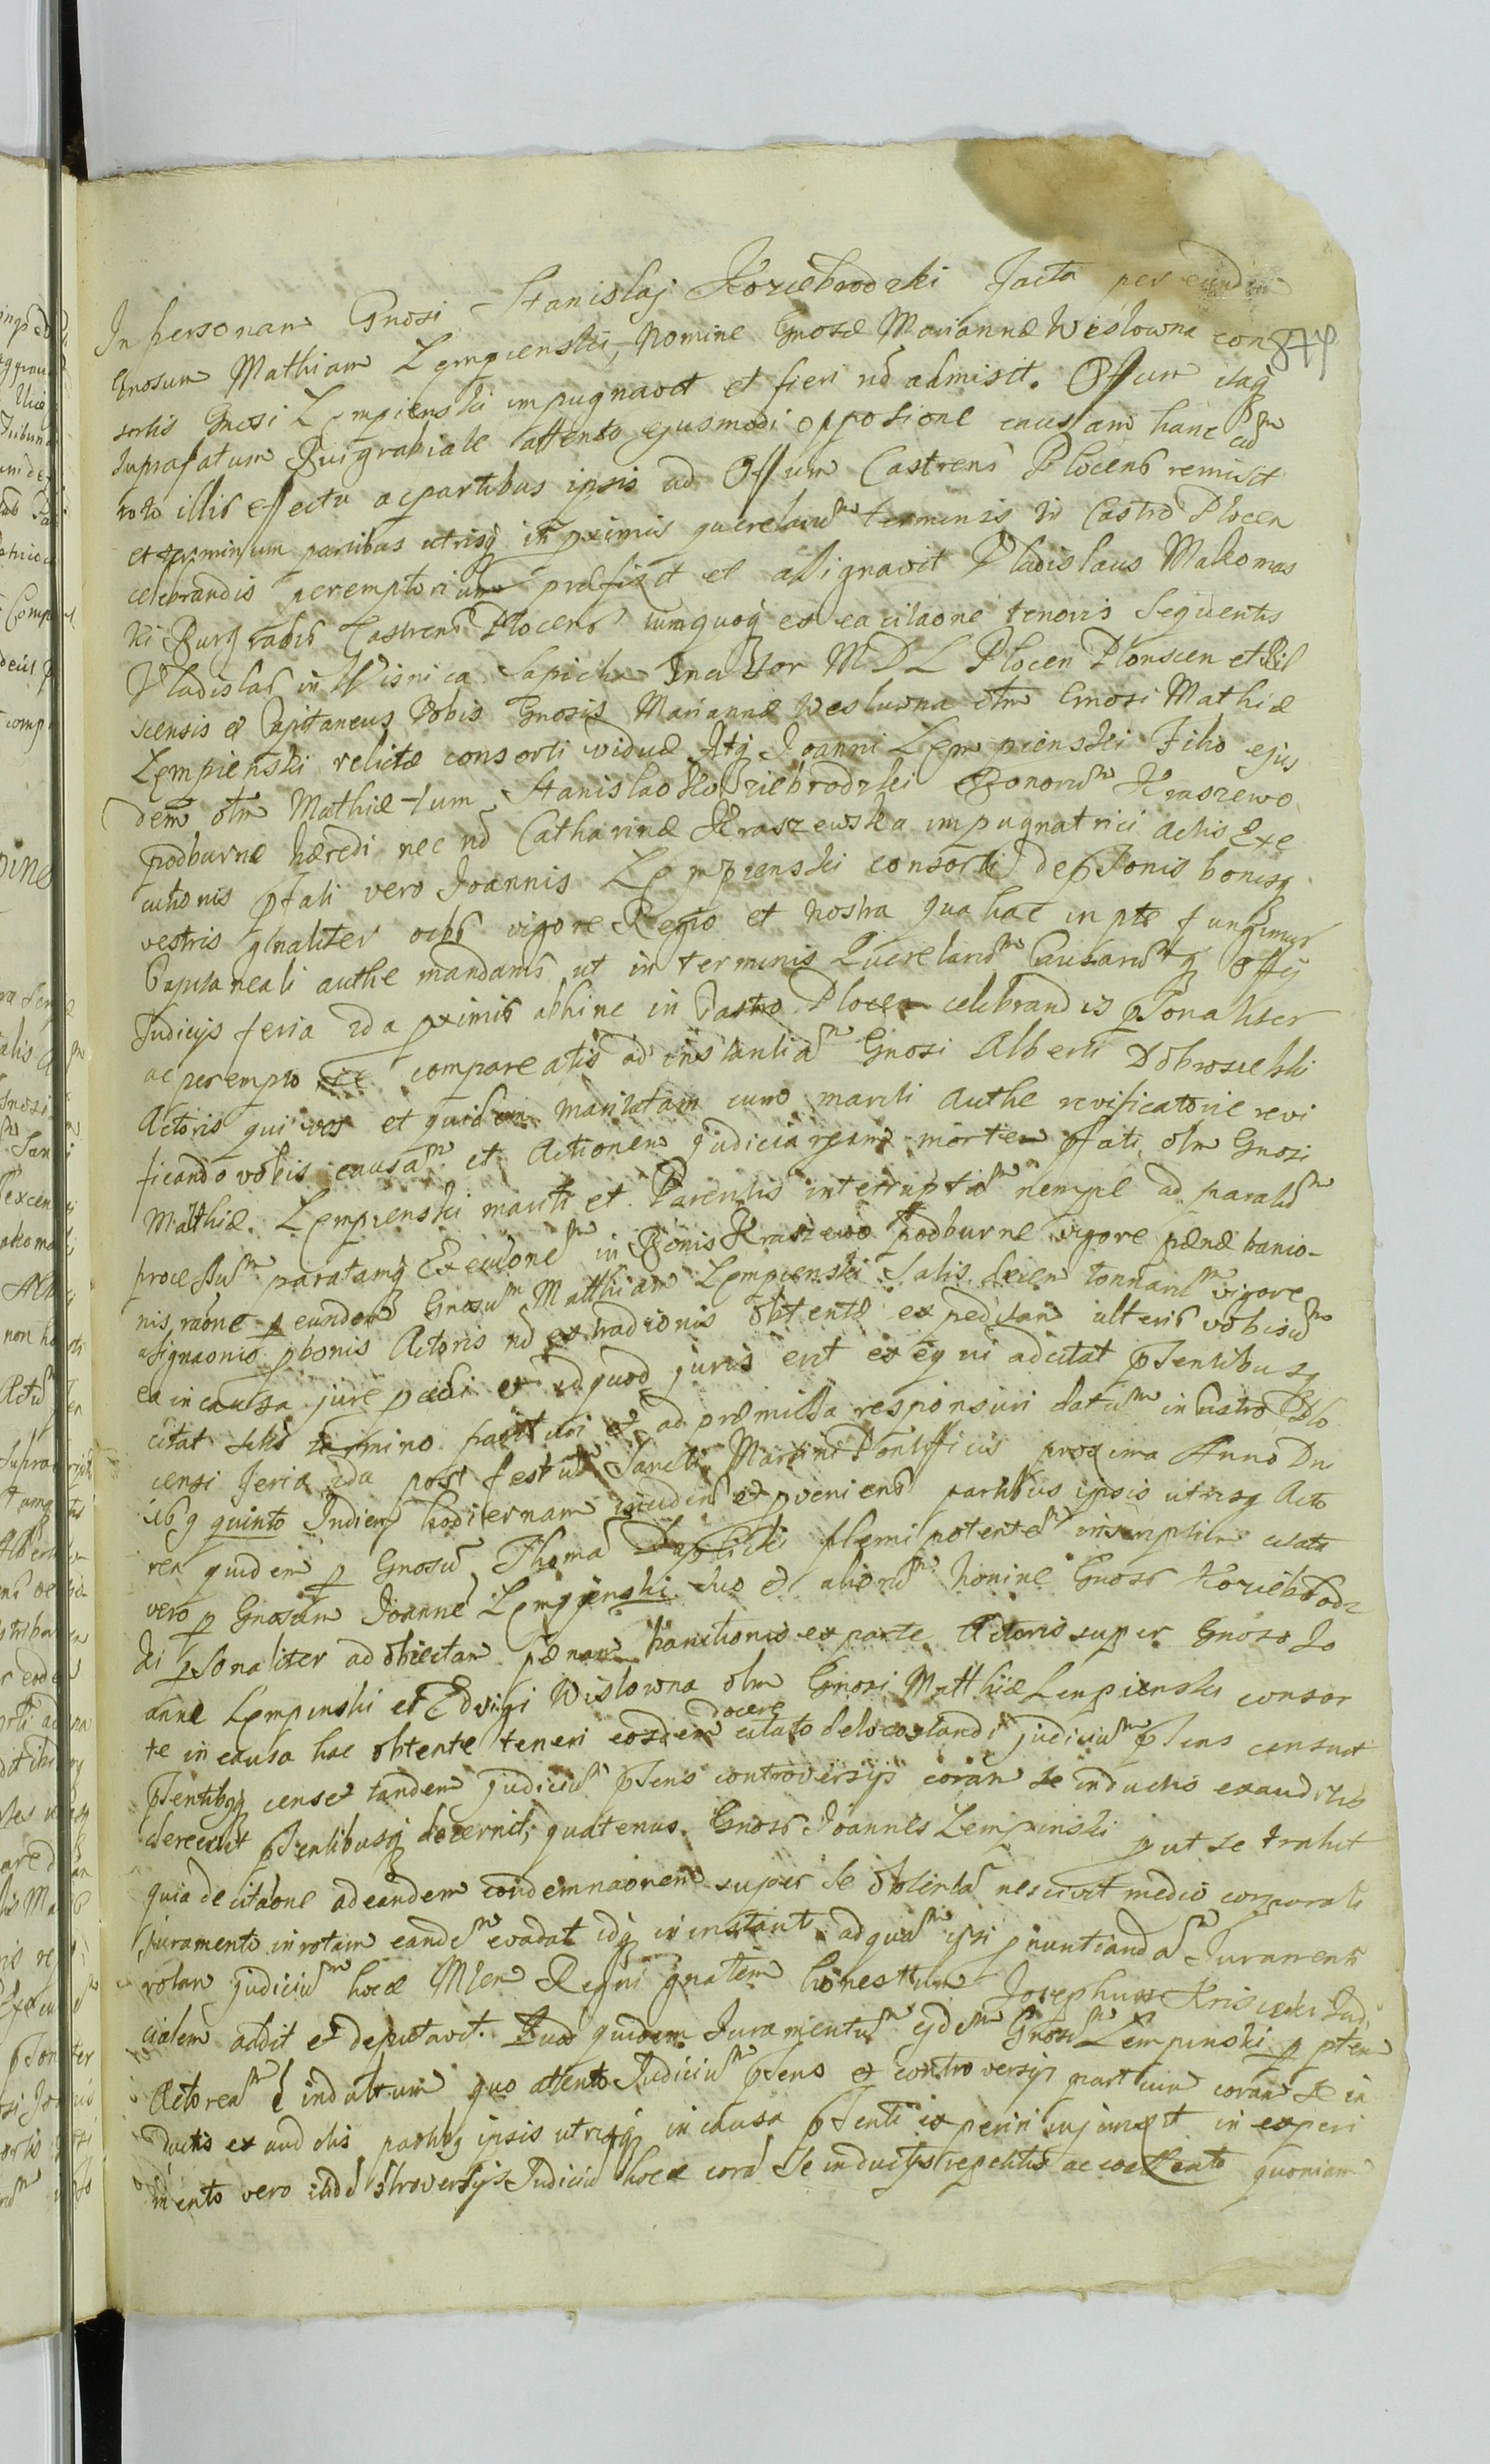 In personam Gnosi Stanislaj Koziebrodzki facta per eundem
Gnosum Mathiam Lempienski, Nomine Gnosæ Mariannæ Weslowna con
sortis Gnosi Lempienski impugnavit et fieri nd admisit. Offum itaq
suprafatum Burgrabiale attento ejusmodi opposione causam hanc cum
toto illis effectu ac partibus ipsis ad Offum Castrens Plocens remisit
et terminum partibus utrisq in pximis querelarum terminis in Castro Plocen
celebrandis peremptorium præfixit et assignavit Vladislaus Makomas
ki Burgrabis Castrens Plocens tumquoq ex ea citaone tenoris sequentis
Vladislas in Visnica Sapieha Incisor MDL Plocen Plonscen et Biel
scensis et Capitaneus Vobis Gnosis Mariannæ Weslowna olm Gnosi Mathiæ
Lempienski relictæ consorti viduæ Atq Joanni Lempienski Filio ejus
dem olm Mathiæ tum Stanislao Koziebrodzki Bonorum Kraszewo
podburne hæredi nec nd Catharinæ Kraszewska impugnatrici actis Exe
cutionis pfati vero Joannis Lempienski consorti de psonis bonisq
vestris gnaliter oibs vigore Regio et nostra qua hac in pte fungimur
Capitaneali authe mandamus ut in terminis Querelarum Causarumq Offy
Judicijs feria 2da pximis abhinc in Castro Plocen celebrandis psonaliter
ac peremptorie compareatis ad instantiam Gnosi Alberti Dobrosielski
Actoris qui vos et quidem maritatam cum mariti authe revificatorie revi
ficando vobis causam et Actionem judiciariam morte pfati olm Gnosi
Mathiæ Lempienski mariti et Parentis interruptam nempe ad paratum
processum paratamq Execuonem in Bonis Kraszewo podburne vigore pænæ banio-
nis, raone p eundem Gnosum Matthiam Lempienski salis decem tonnarum vigore
assignaonis pbonis Actoris nd extradionis obtentæ expeditam ulteris vobiscum
ea in causa jure paedi et id quod juris erit exequi adcitat psentibusq
citat sitis termino parituri et ad præmissa responsuri datum in Castro Plo
censi feria 2da post festum Sancti Martini Pontificis proxima Anno Dni
16 q quinto Indiem hodiernam incidens et pveniens partibus ipsis utrisq Acto
rea quidem p Gnosum Thomam plemipotentem inscriptum citata
vero p Gnosum Joannem Lempienski suo et aliorum Nomine Gnoss Koziebrodz
ki psonaliter ad obiectam pænam banitionis ex parte Actoris super Gnoso Jo
anne Lempinski et Edvigi Wislowna olm Gnosi Matthiæ Lempienski consor
te in causa hac obtente teneri eosdem docere citato de locostandi judicium psens censuit
psentibqq censet tandem judicium psens controversijs coram se inductis exauditis
decrevit psentibusq decernit, quatenus Gnoss Joannes Lempinski put se trahit
quia de citaone ad eandem condemnaonem super se obtenta nescivit medio corporali
juramenti in rotam eandem evadat idq in instanti ad quam ipsi pnuntiandam Juramenti
rotam judicium hocce Mlem Regni gnalem honestum Josephum Kris Judi
cialem addit et deputavit. Quod quidem Juramentum ejdem Gnosum Lempinski p ptem
Actoream e indultum quo attento Judicium psens ex controversijs partium coram se in
ductis exauditis partibq ipsis utrisq in causa psenti experiri injunxit in experi
mento vero ibidem controversijs Judicium hocce coram se inductis repetitis ac attento quoniam